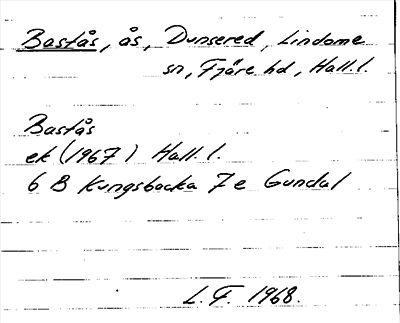 Bastås, ås, Dunsered, Lindome
sn, Fjäre hd, Hall.l.
Bastås
ek (1967) Hall.l.
6 B Kungsbacka 7e Gundal
L.F. 1968.